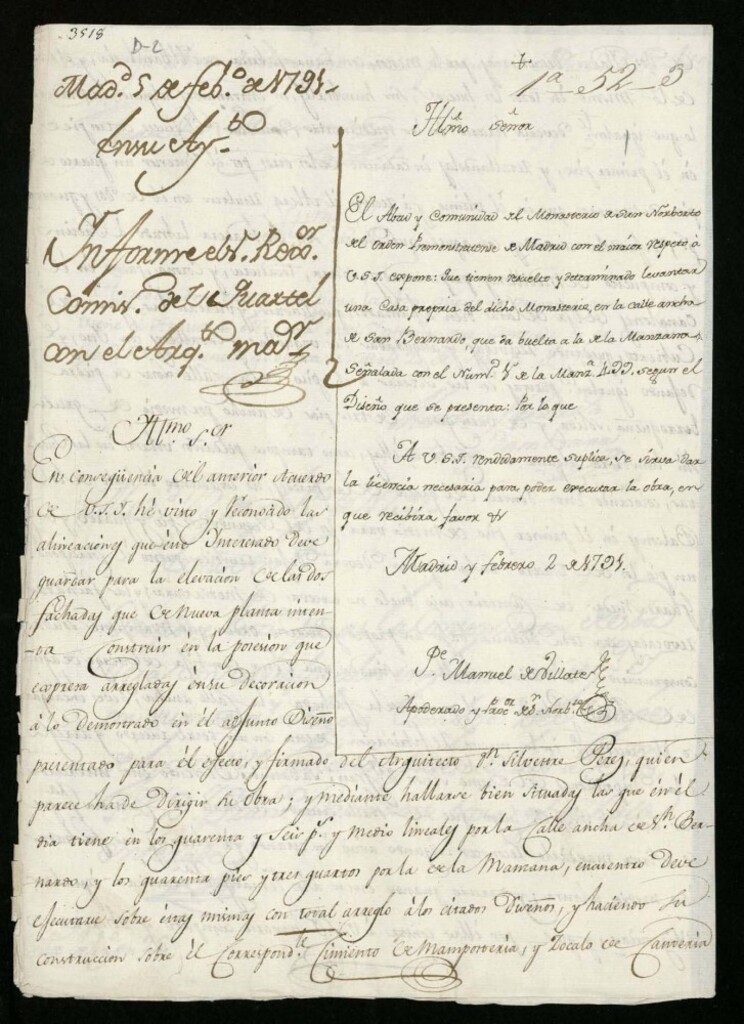 3518
D-C
1ª 52-3
1
Mad.d 5 de feb.o de 1791.
En su Ay.to
Informe el S.r Rexor.
Comis.o del Quartel
con el Arq.to ma.or
Illmo Señor
El Abad y Comunidad del Monasterio de San Norberto
del orden Premonstratense de Madrid con el maior respeto á
V.S.I. expone: Que tienen resuelto y determinado levantar
una Casa propria del dicho Monasterio, en la calle ancha
de San Bernardo, que da buelta a la de la Manzana,
Señalada con el Num.o 5 de la Manz.a 499, segun el
Diseño que se presenta: Por lo que
A V.S.I. rendidamente suplica, se sirva dar
la licencia necesaria para poder executar la obra, en
que recibirá favor
Madrid y febrero 2 de 1791.
P.e Manuel de Villate
Apoderado y
Illmo. S.or
En conseqüencia del anterior Acuerdo
de V.S.I. hé visto y reconocido las
alineaciones que este Interesado deve
guardar para la elevacion de las dos
fachadas que de nueva planta inten-
-ta Construir en la posesion que
expresa arregladas en su decoracion
á lo demostrado en él adjunto Diseño
presentado para él efecto, y firmado del Arquitecto d.n Silvestre Perez, quien
parece ha de dirigir la obra; y mediante hallarse bien situadas las que en él
dia tiene en los quarenta y seis p.s y medio lineales por la Calle ancha de S.n Ber-
nardo, y los quarenta pies y tres quartos por la de la Manzana, encuentro deve
ejecutarse sobre estas mismas con total arreglo á los citados Diseños, y haciendo su
construccion sobre él Correspond.te Cimiento de Mamposteria, y Zocalo de Canteria